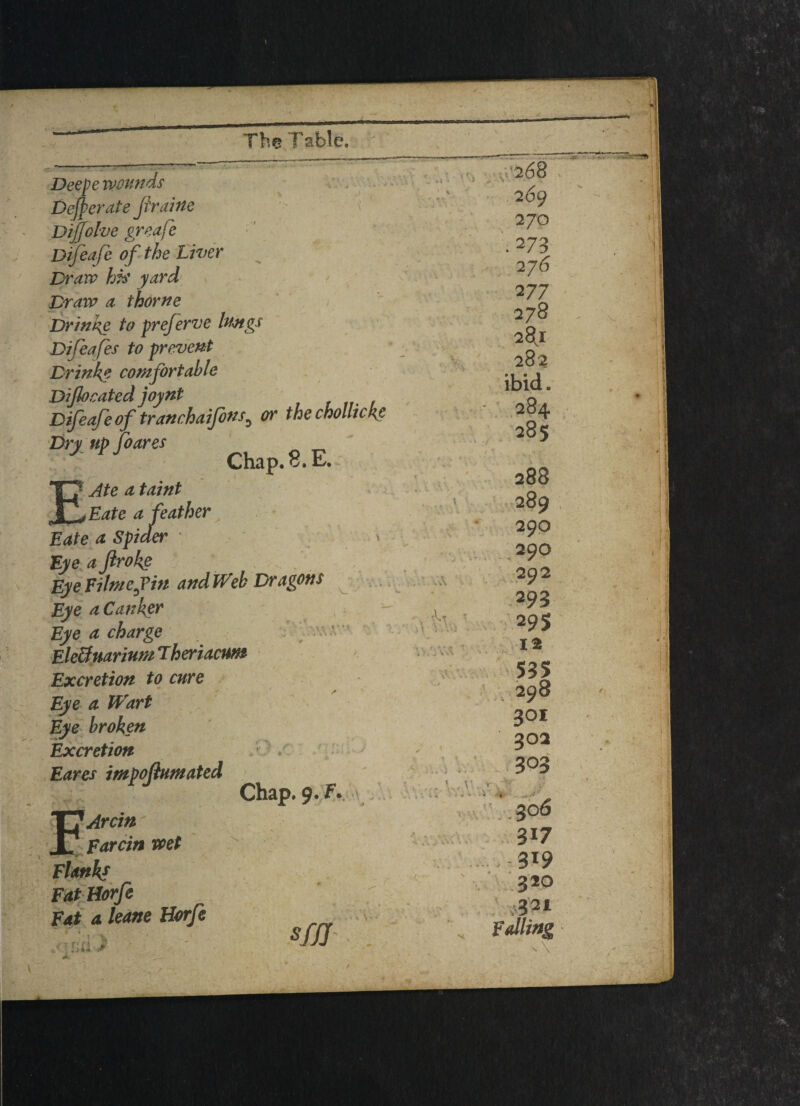 The Table.
Deepe wounds 268
Desperate straine 269
Dissolve grease 270
Disease of the Liver . 273
Draw his yard 276
Draw a thorne 277
Drinke to preserve lungs 278
Diseases to prevent 281
Drinke comfortable 282
Dislocated joynt ibid.
Disease of tranchaisons, or the chollicke 284
Dry up soares 285
Chap. 8. E.
EAte a taint 288
Eate a feather 289
Eate a Spider 290
Eye a stroke 290
Eye Filme, Pin and Web Dragons 292
Eye a Canker 293
Eye a charge 295
Electuarium Theriacum 12
Excretion to cure 535
Eye a Wart 298
Eye broken 301
Excretion 302
Eares impostumated 303
Chap. 9. F.
FArcin 306
Farcin wet 317
Flanks 319
Fat Horse 320
Fat a leane Horse 321
Sfff Falling